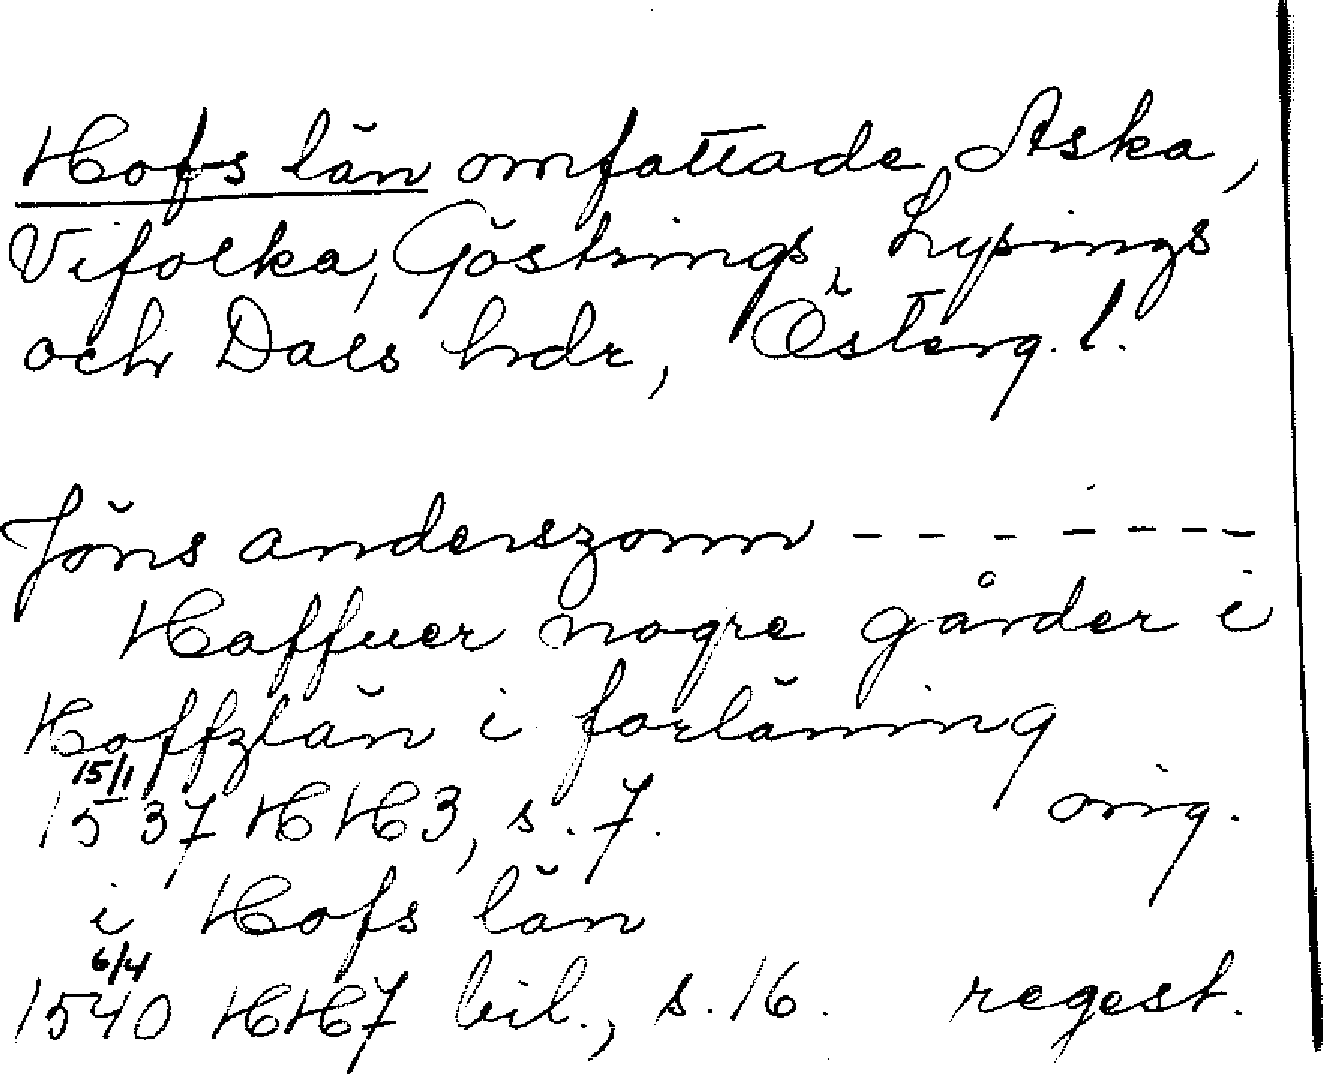 Hofs län omfattade Aska,
Vifolka, Göstrings, Lysings
och Dals hdr, Österg. l.
Jöns anderszonn - - - - - - -
Haffuer nogre gårder i
Hoffzlän i forläning
15/1
1537 HH3, s. 7. orig.
i Hofs län
6/4
1540 HH7 bil., s. 16. regest.